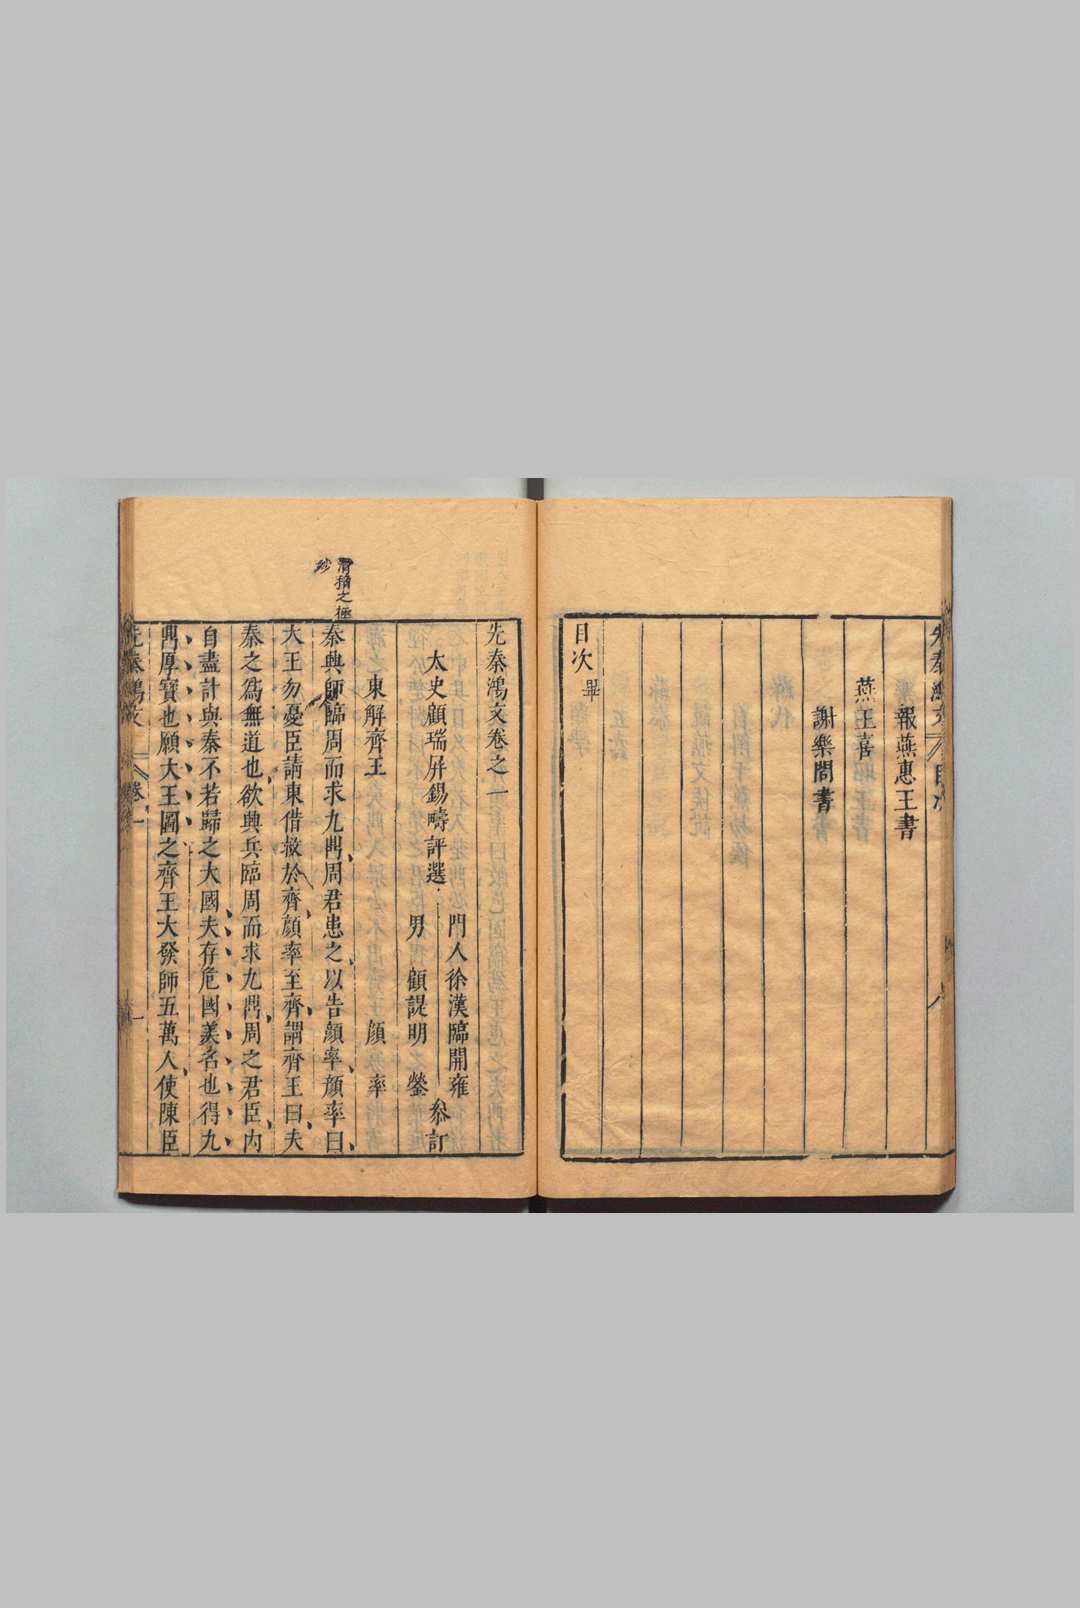 報燕惠王書
燕王喜
謝樂閒書
目次畢
先秦鴻文卷之一
太史顧瑞屏錫疇評選
門人徐漢臨開雍
男顧諟明鎣
叅訂
東解齊王
顏率
滑稽之極
秦興師臨周而求九鼎周君患之以告顏率顏率曰
大王勿憂臣請東借救於齊顏率至齊謂齊王曰夫
秦之爲無道也欲興兵臨周而求九鼎周之君臣內
自盡計與秦不若歸之大國夫存危國美名也得九
鼎厚寶也願大王圖之齊王大發師五萬人使陳臣
先秦鴻文
卷一
一